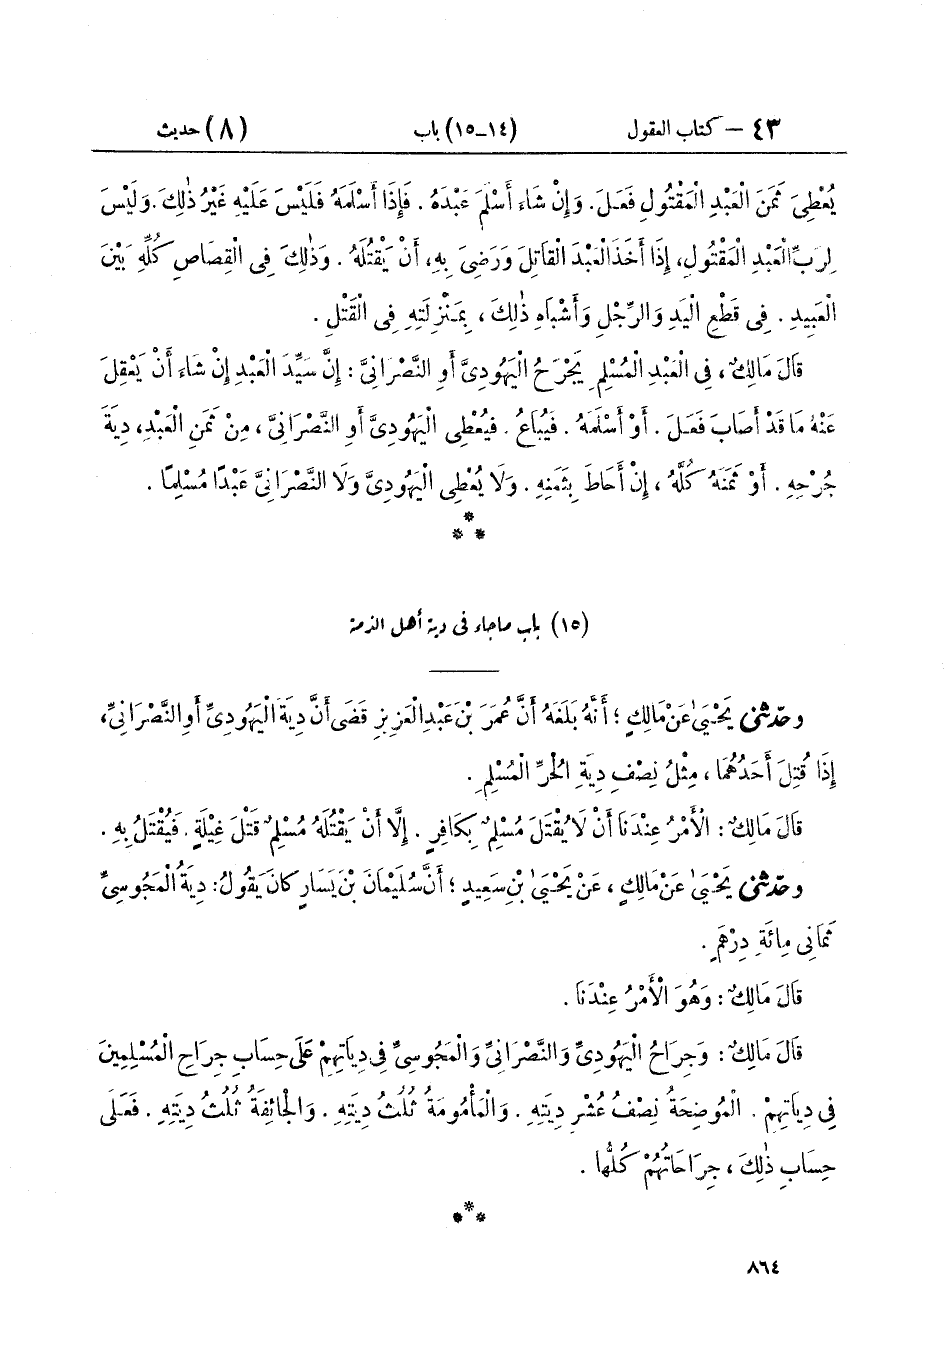 ٤٣ – كتاب العقول (١٤-١٥) باب (٨) حديث
يُعْطِىَ ثَمَنَ الْعَبْدِ الْمَقْتُولِ فَعَلَ. وَإِنْ شَاءَ أَسْلَمَ عَبْدَهُ. فَإِذَا أَسْلَمَهُ فَلَيْسَ عَلَيْهِ غَيْرُ ذٰلِكَ. وَلَيْسَ
لِرَبِّ الْعَبْدِ الْمَقْتُولِ، إِذَا أَخَذَ الْعَبْدَ الْقَاتِلَ وَرَضِىَ بِهِ، أَنْ يَقْتُلَهُ. وَذٰلِكَ فِى الْقِصَاصِ كُلِّهِ بَيْنَ
الْعَبِيدِ. فِى قَطْعِ الْيَدِ وَالرِّجْلِ وَأَشْبَاهِ ذٰلِكَ، بِمَنْزِلَتِهِ فِى الْقَتْلِ.
قَالَ مَالِكٌ، فِى الْعَبْدِ الْمُسْلِمِ يَجْرَحُ الْيَهُودِىَّ أَوِ النَّصْرَانِىَّ: إِنَّ سَيِّدَ الْعَبْدِ إِنْ شَاءَ أَنْ يَعْقِلَ
عَنْهُ مَا قَدْ أَصَابَ فَعَلَ. أَوْ أَسْلَمَهُ. فَيُبَاعُ. فَيُعْطِى الْيَهُودِىَّ أَوِ النَّصْرَانِىَّ، مِنْ ثَمَنِ الْعَبْدِ، دِيَةَ
جُرْحِهِ. أَوْ ثَمَنَهُ كُلَّهُ، إِنْ أَحَاطَ بِثَمَنِهِ. وَلَا يُعْطِى الْيَهُودِىَّ وَلَا النَّصْرَانِىَّ عَبْدًا مُسْلِمًا.
*
* *
(١٥) باب ماجاء فى دية أهل الذمة
وحدّثنى يَحْيَىٰ عَنْ مَالِكٍ؛ أَنَّهُ بَلَغَهُ أَنَّ عُمَرَ بْنَ عَبْدِ الْعَزِيزِ قَضَى أَنَّ دِيَةَ الْيَهُودِىِّ أَوِ النَّصْرَانِىِّ،
إِذَا قُتِلَ أَحَدُهُمَا، مِثْلُ نِصْفِ دِيَةِ الْحُرِّ الْمُسْلِمِ.
قَالَ مَالِكٌ: الْأَمْرُ عِنْدَنَا أَنْ لَا يُقْتَلَ مُسْلِمٌ بِكَافِرٍ. إِلَّا أَنْ يَقْتُلَهُ مُسْلِمٌ قَتْلَ غِيلَةٍ. فَيُقْتَلُ بِهِ.
وحدّثنى يَحْيَىٰ عَنْ مَالِكٍ، عَنْ يَحْيَىٰ بْنِ سَعِيدٍ؛ أَنَّ سُلَيْمَانَ بْنَ يَسَارٍ كَانَ يَقُولُ: دِيَةُ الْمَجُوسِىِّ
ثَمَانِى مِائَةِ دِرْهَمٍ.
قَالَ مَالِكٌ: وَهُوَ الْأَمْرُ عِنْدَنَا.
قَالَ مَالِكٌ: وَجِرَاحُ الْيَهُودِىِّ وَالنَّصْرَانِىِّ وَالْمَجُوسِىِّ فِى دِيَاتِهِمْ عَلَى حِسَابِ جِرَاحِ الْمُسْلِمِينَ
فِى دِيَاتِهِمْ. الْمُوضِحَةُ نِصْفُ عُشْرِ دِيَتِهِ. وَالْمَأْمُومَةُ ثُلُثُ دِيَتِهِ. وَالْجَائِفَةُ ثُلُثُ دِيَتِهِ. فَعَلَى
حِسَابِ ذٰلِكَ، جِرَاحَاتُهُمْ كُلُّهَا.
*
* *
٨٦٤